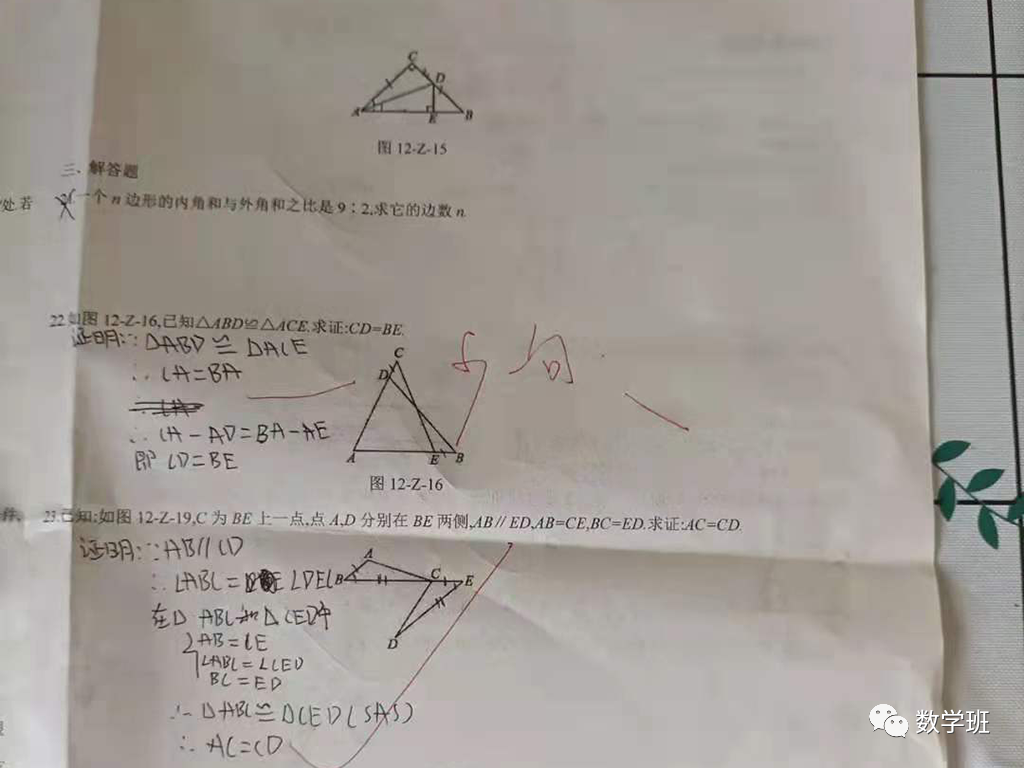 C
D
A
E
B
图12-Z-15
三、解答题
处若
一个n边形的内角和与外角和之比是9∶2,求它的边数n.
22.如图12-Z-16,已知△ABD≌△ACE.求证:CD=BE.
证明:∵△ABD≌△ACE
∴CA=BA
∴CA-AD=BA-AE
即CD=BE
C
D
A
E
B
图12-Z-16
23.已知:如图12-Z-19,C为BE上一点,点A,D分别在BE两侧,AB∥ED,AB=CE,BC=ED.求证:AC=CD.
证明:∵AB∥CD
∴∠ABC=∠DEC
在△ABC和△CED中
AB=CE
∠ABC=∠CED
BC=ED
∴△ABC≌△CED(SAS)
∴AC=CD
A
B
C
E
D
数学班